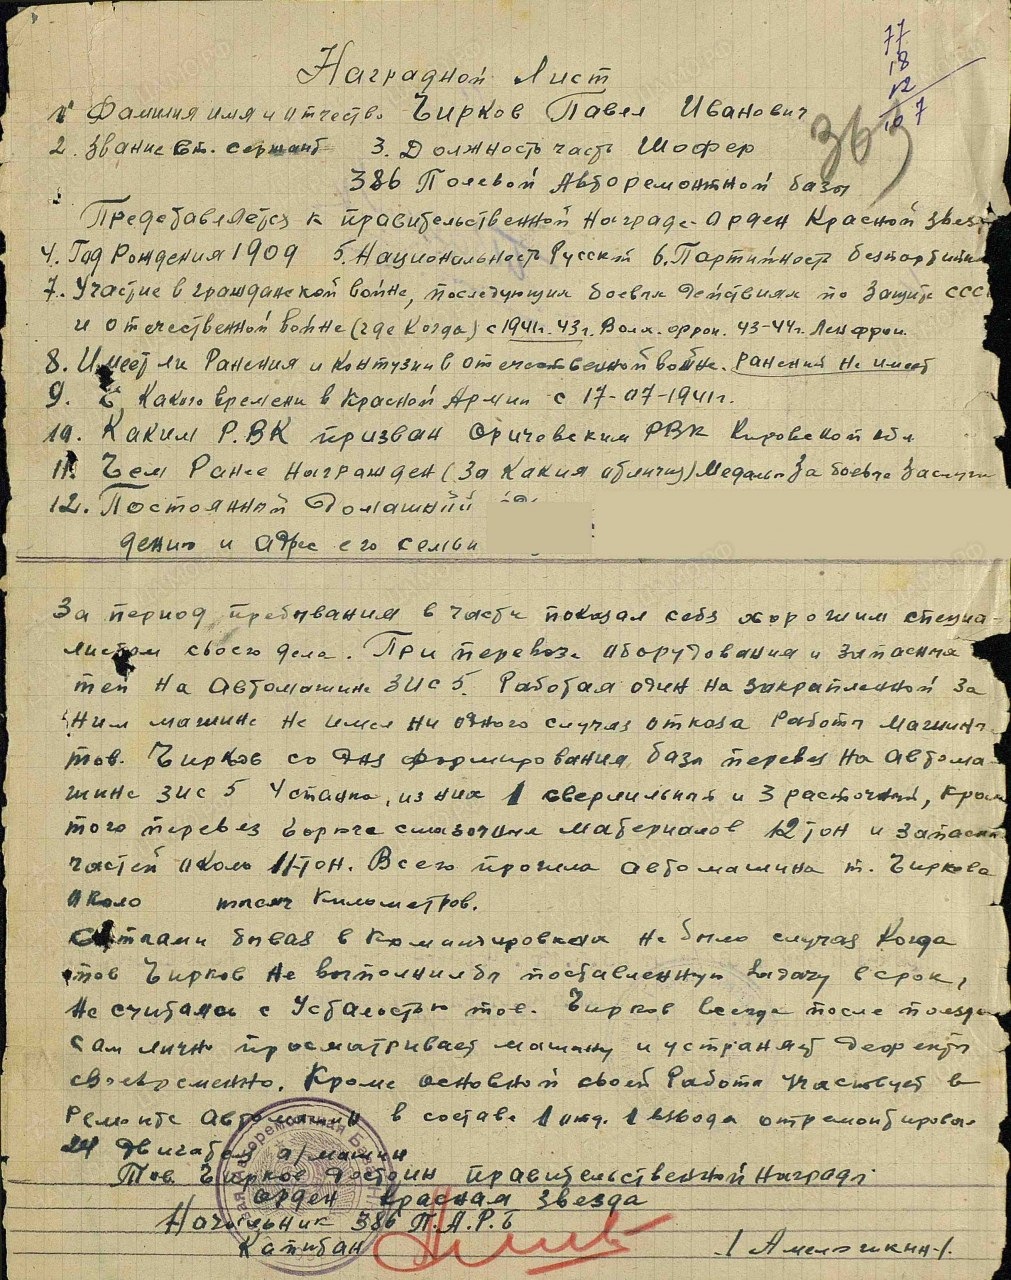 77
18
12
107
363
Наградной Лист
1. Фамилия имя и отчество Чирков Павел Иванович
2. Звание ст. сержант 3. Должность часть Шофер
386 Полевой Авторемонтной базы
Представляется к правительственной Награде-Орден Красной Звезд
4. Год Рождения 1909 5. Национальность Русский 6. Партийность безпартийн
7. Участие в гражданской войне, последующих боевых действиях по защите СССР
и отечественной войне (где Когда) с 1941г. 43г. Волх. фрон. 43-44г. Ленфрон.
8. Имеет ли Ранения и Контузии в отечественной войне. ранений не имеет
9. С Какого времени в Красной Армии с 17-07-1941г.
10. Каким Р.ВК призван Оричевским РВК Кировской обл
11. Чем Ранее награжден (за Какия отличия) Медаль За боевые Заслуги
12. Постоянный Домашний
дению и адрес его семьи
За период пребывания в части показал себя хорошим специа-
листом своего дела. При перевозе оборудования и запасных
тей на Автомашине ЗИС 5. Работая один на закрепленной за
ним машине не имел ни одного случая отказа работы машины
тов. Чирков со дня формирования базы перевез на автома-
шине ЗИС 5 4 станка, из них 1 сверлильный и 3 расточный, кром
того перевез Горюче смазочных материалов 12 тон и запасны
частей около 11-тон. Всего прошла автомашина т. Чиркова
около тысяч Километров.
бывая в командировках не было случая Когда
тов Чирков не выполнил бы поставленную задачу в срок,
не считаясь с Усталостью тов. Чирков всегда после поездк
сам лично просматривает машину и устраняет дефекты
своевременно. Кроме основной своей Работы участвует в
Ремонте Автомашин в составе 1 отд. 1 взвода отремонтирова-
24 двигателя а/машин
Тов Чирков достоин правительственной Награды
орден Красная Звезда
Начальник 386 П.А.Р.Б
Капитан /Амелюшкин/.